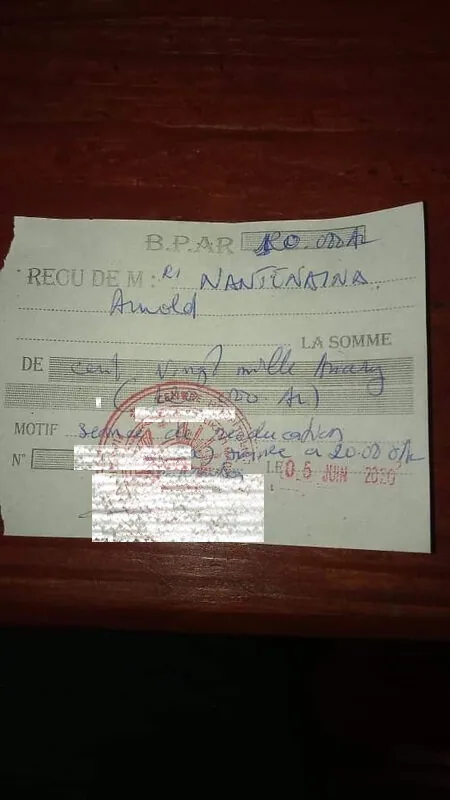 B.P.AR 120.000Ar
REÇU DE M : Rr NANTENAINA
Arnold
LA SOMME
DE cent vingt mille Ariary
( 000 Ar)
MOTIF de reeducation
N° à 20.000Ar
LE 05 JUIN 2020